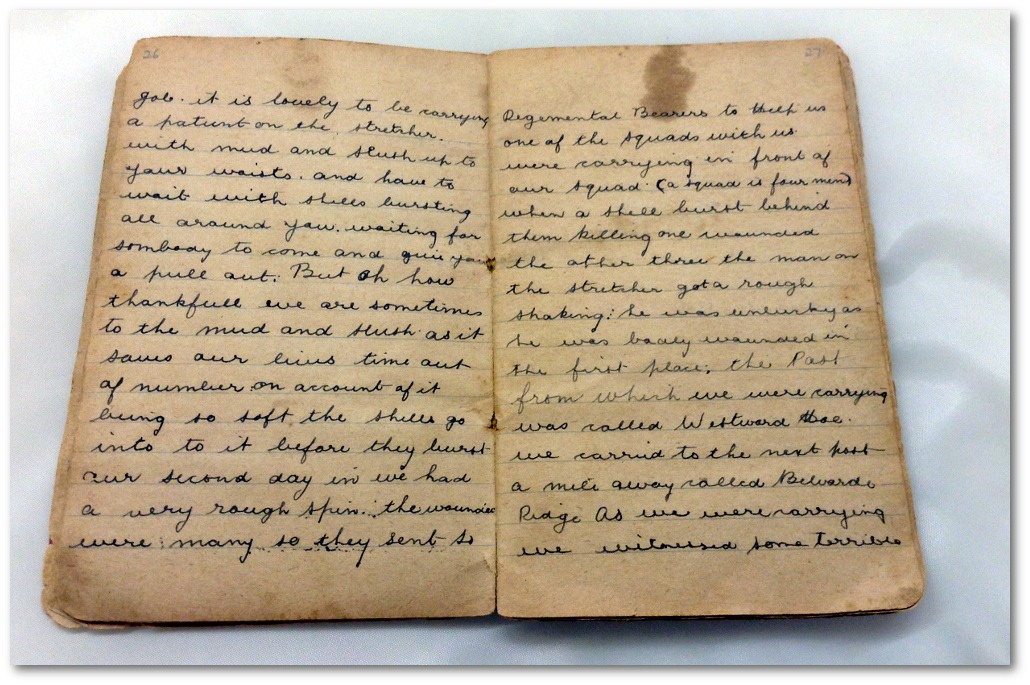 26
job. it is lovely to be carrying
a patient on the stretcher.
with mud and slush up to
your waists. and have to
wait with shells bursting
all around you. waiting for
sombody to come and give you
a pull out: But oh how
thankfull we are sometimes
to the mud and slush as it
saves our lives time out
of number on account of it
being so soft the shells go
into to it before they burst
our second day in we had
a very rough spin. the wounded
were many so they sent 
27
Regemental Bearers to help us
one of the squads with us
were carrying in front of
our squad. (a squad is four men)
when a shell burst behind
them killing one wounded
the other three the man on
the stretcher got a rough
shaking: he was unlucky as
he was badly wounded in
the first place; the Post
from which we were carrying
was called Westward Hoe.
we carried to the next post
a mile away called Belvarde
Ridge As we were carrying
we witnessed some terrible